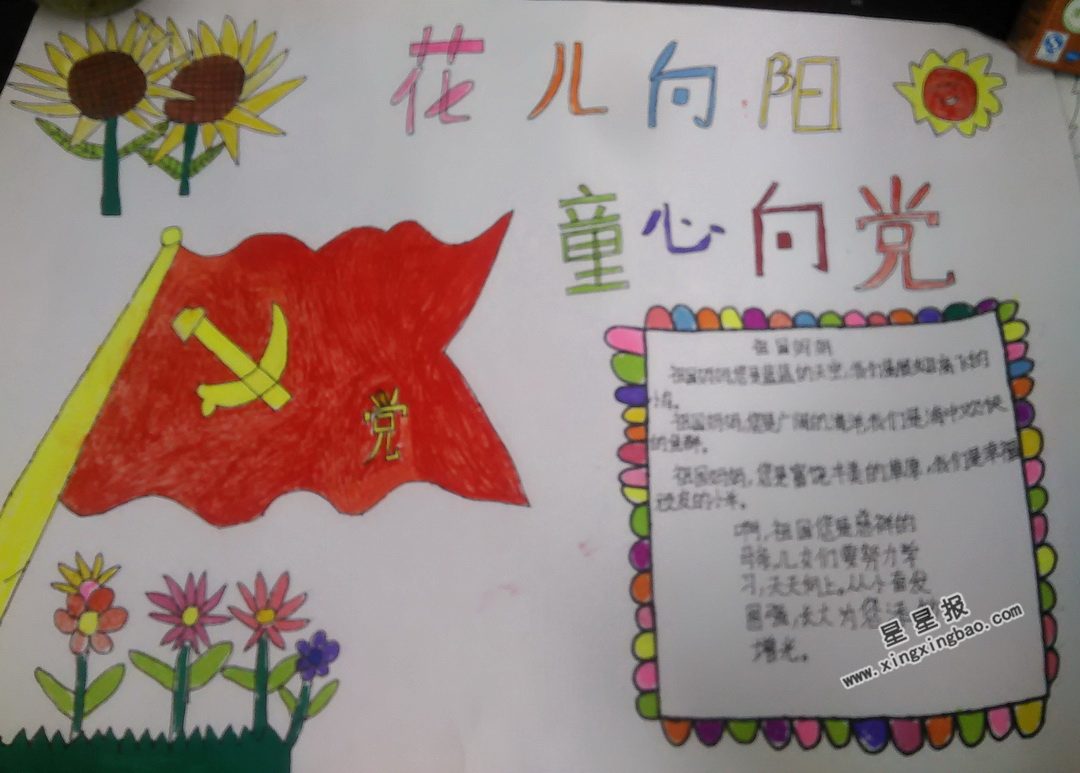 花儿向阳
童心向党
党
祖国妈妈
祖国妈妈,您是蓝蓝的天空,我们是展翅高飞的
小鸟。
祖国妈妈,您是广阔的海洋,我们是海中欢快
的鱼群。
祖国妈妈,您是富饶丰美的草原,我们是幸福
的小羊。
啊,祖国您是慈祥的
母亲,儿女们要努力学
习,天天向上。从小奋发
图强,长大为您
增光。
星星报
www.xingxingbao.com